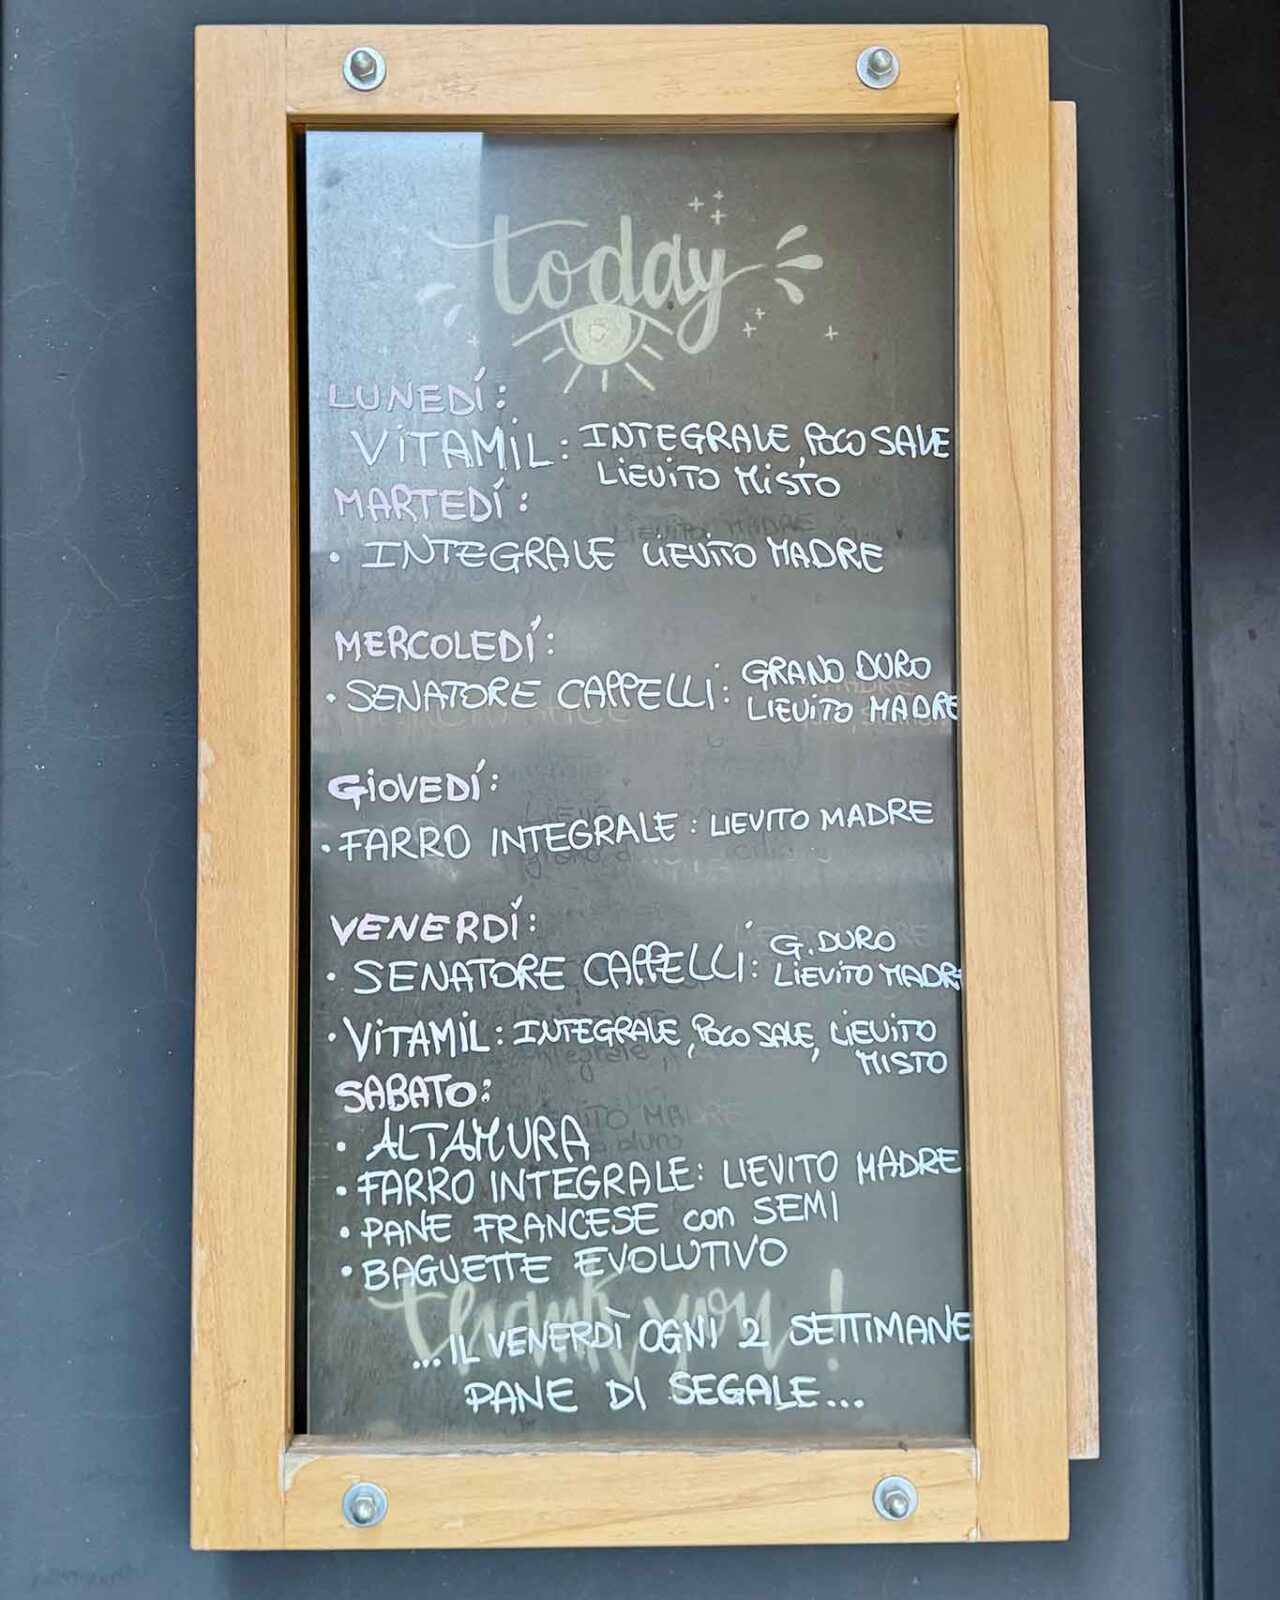 today
LUNEDÍ:
VITAMIL: INTEGRALE, POCO SALE
LIEVITO MISTO
MARTEDÍ:
• INTEGRALE LIEVITO MADRE
MERCOLEDÍ:
• SENATORE CAPPELLI: GRANO DURO
LIEVITO MADRE
GIOVEDÍ:
• FARRO INTEGRALE: LIEVITO MADRE
VENERDÍ:
• SENATORE CAPPELLI: G. DURO
LIEVITO MADRE
• VITAMIL: INTEGRALE, POCO SALE, LIEVITO
MISTO
SABATO:
• ALTAMURA
• FARRO INTEGRALE: LIEVITO MADRE
• PANE FRANCESE con SEMI
• BAGUETTE EVOLUTIVO
thank you!
...IL VENERDÌ OGNI 2 SETTIMANE
PANE DI SEGALE...